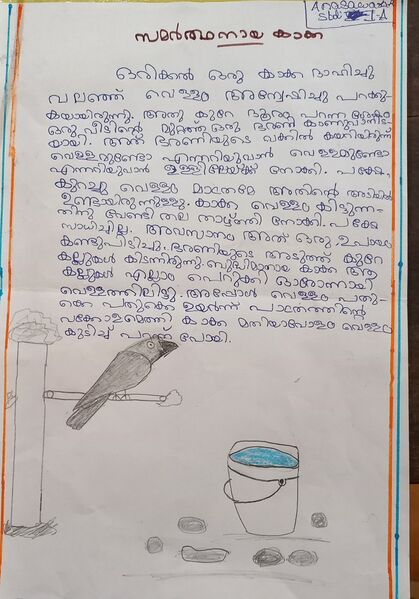 സമർത്ഥനായ കാക്ക
ഒരിക്കൽ ഒരു കാക്ക ദാഹിച്ചു
വലഞ്ഞ് വെള്ളം അന്വേഷിച്ചു പറക്കു-
കയായിരുന്നു. അതു കുറേ ദൂരം പറന്ന ശേഷം
ഒരു വീടിന്റെ മുറ്റത്ത് ഒരു ഭരണി കാണുവാനിട-
യായി. അത് ഭരണിയുടെ വക്കിൽ കയറിയിരുന്ന്
വെള്ളമുണ്ടോ എന്നറിയുവാൻ വെള്ളമുണ്ടോ
എന്നറിയുവാൻ ഉള്ളിലേയ്ക്ക് നോക്കി. പക്ഷേ,
കുറച്ചു വെള്ളം മാത്രമേ അതിന്റെ അടിയിൽ
ഉണ്ടായിരുന്നുള്ളു. കാക്ക വെള്ളം കിട്ടുന്ന-
തിനു വേണ്ടി തല താഴ്ത്തി നോക്കി. പക്ഷേ
സാധിച്ചില്ല. അവസാനം അത് ഒരു ഉപായം
കണ്ടുപിടിച്ചു. ഭരണിയുടെ അടുത്ത് കുറേ
കല്ലുകൾ കിടന്നിരുന്നു. ബുദ്ധിമാനായ കാക്ക ആ
കല്ലുകൾ എല്ലാം പെറുക്കി ഓരോന്നായി
വെള്ളത്തിലിട്ടു. അപ്പോൾ വെള്ളം പതു-
ക്കെ പതുക്കെ ഉയർന്ന് പാത്രത്തിന്റെ
വക്കോളമെത്തി കാക്ക മതിയാവോളം വെള്ളം
കുടിച്ച് പറന്ന് പോയി.